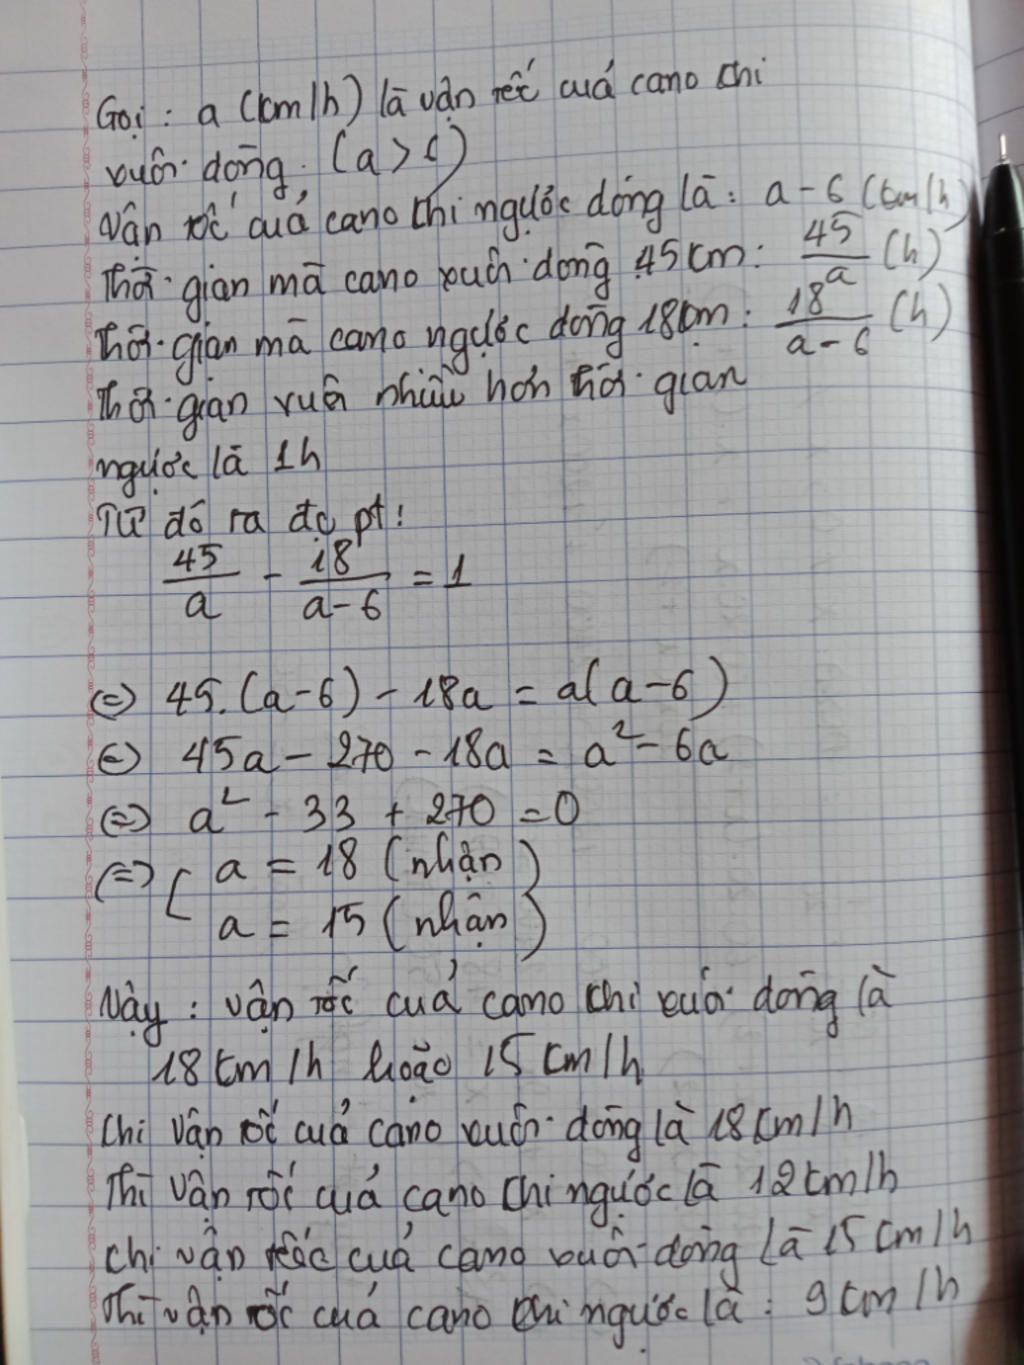 Gọi : a (km/h) là vận tốc cuả cano khi
xuôi dòng. (a > 6)
Vận tốc cuả cano khi ngược dòng là: a - 6 (km/h)
Thời gian mà cano xuôi dòng 45km: 45/a (h)
Thời gian mà cano ngược dòng 18km: 18/(a-6) (h)
Thời gian xuôi nhiều hơn thời gian
ngược là 1h
Từ đó ta đc pt:
45/a - 18/(a-6) = 1
(=) 45.(a-6) - 18a = a(a-6)
(=) 45a - 270 - 18a = a² - 6a
(=) a² - 33 + 270 = 0
(=) [ a = 18 (nhận)
a = 15 (nhận)
Vậy : vận tốc cuả cano khi xuôi dòng là
18 km/h hoặc 15 km/h
Khi vận tốc cuả cano xuôi dòng là 18 km/h
Thì vận tốc cuả cano khi ngược là 12 km/h
Khi vận tốc cuả cano xuôi dòng là 15 km/h
Thì vận tốc cuả cano khi ngược là : 9 km/h